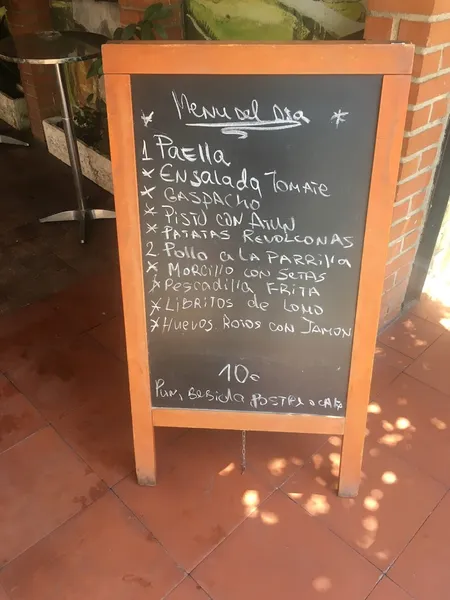 * Menu del Dia *
1 Paella
* Ensalada Tomate
* Gaspacho
* Pisto con Atun
* Patatas Revolconas
2 Pollo a la Parrilla
* Morcillo con Setas
* Pescadilla Frita
* Libritos de Lomo
* Huevos Rotos con Jamon
10€
Pan, Bebida Postre o Cafe